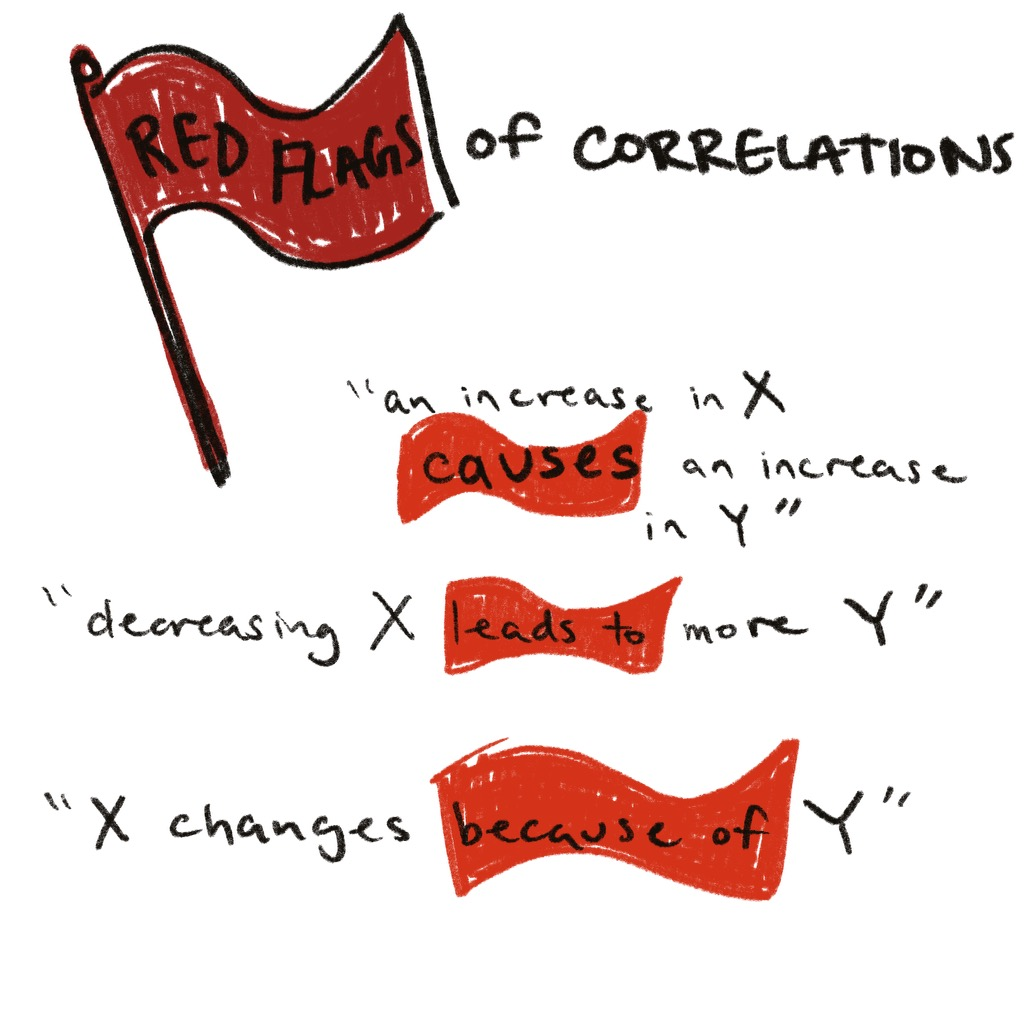 RED FLAGS of CORRELATIONS
"an increase in X
causes an increase
in Y"
"decreasing X leads to more Y"
"X changes because of Y"